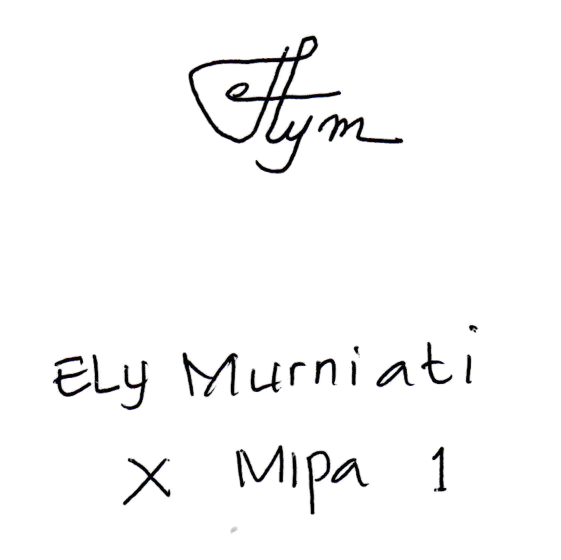 Elym
ELy Murniati
X MIpa 1